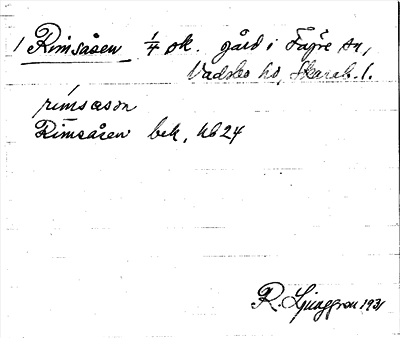 1 Rimsåsen 1/4 ok. gård i Fägre sn,
Vadsbo hd, Skarab. l.
rimsåsən
Rimsåsen bek. hb 24
R. Ljunggren 1931